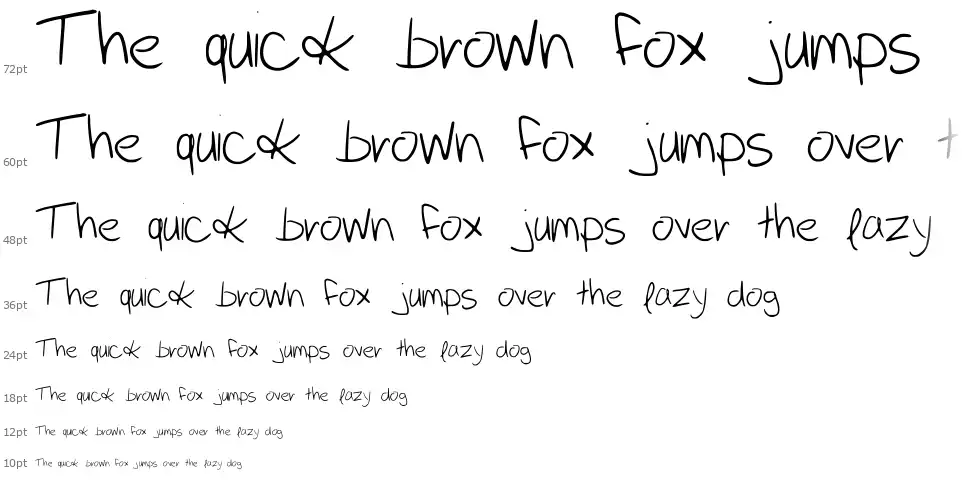 72pt The quick brown fox jumps
60pt The quick brown fox jumps over t
48pt The quick brown fox jumps over the lazy
36pt The quick brown fox jumps over the lazy dog
24pt The quick brown fox jumps over the lazy dog
18pt The quick brown fox jumps over the lazy dog
12pt The quick brown fox jumps over the lazy dog
10pt The quick brown fox jumps over the lazy dog